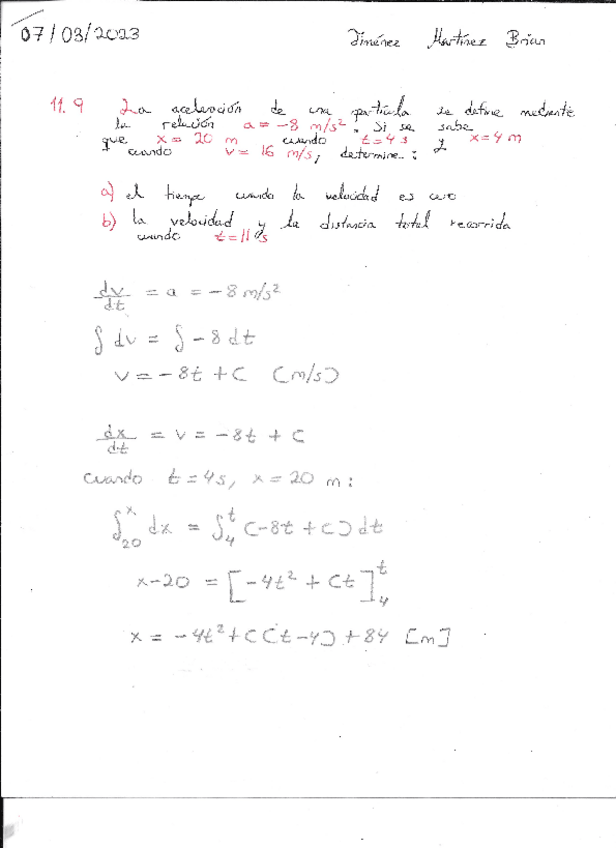 07/03/2023
Jiménez Martínez Brian
11.9 La aceleración de una partícula se define mediante
la relación a = -8 m/s². Si se sabe
que x = 20 m cuando t = 4 s y x = 4 m
cuando v = 16 m/s, determine:
a) el tiempo cuando la velocidad es cero
b) la velocidad y la distancia total recorrida
cuando t = 11 s
dv/dt = a = -8 m/s²
∫ dv = ∫ -8 dt
v = -8t + C (m/s)
dx/dt = v = -8t + C
cuando t = 4s, x = 20 m:
∫₂₀ˣ dx = ∫₄ᵗ (-8t + C) dt
x - 20 = [-4t² + Ct]₄ᵗ
x = -4t² + C(t-4) + 84 [m]